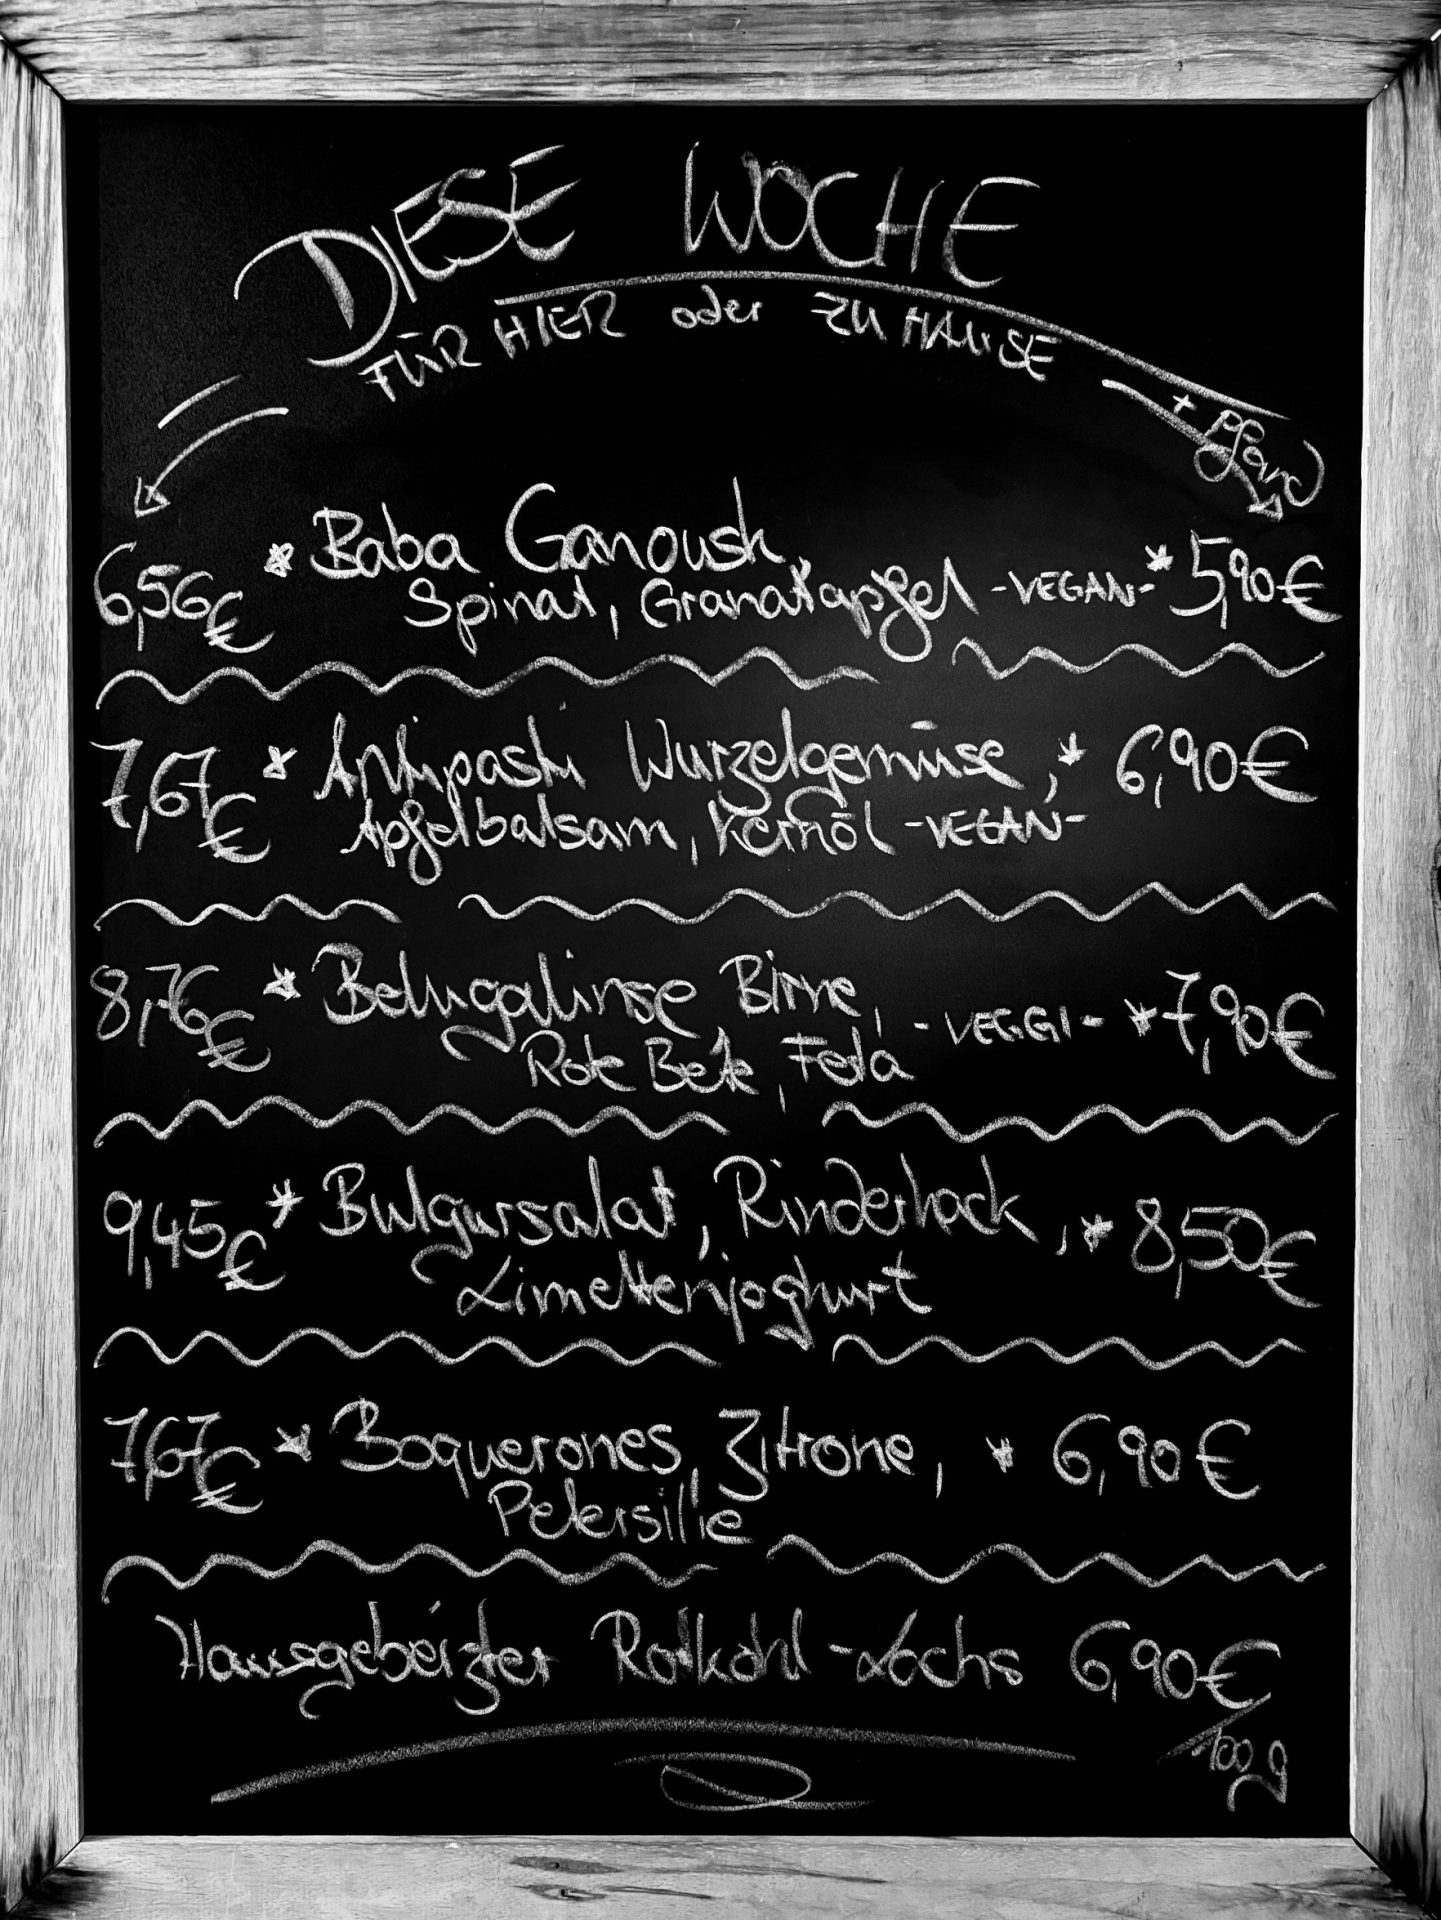 DIESE WOCHE
FÜR HIER oder ZU HAUSE
+ Pfand
6,56€ * Baba Ganoush, 
Spinat, Granatapfel -VEGAN- * 5,90€
7,67€ * Antipasti Wurzelgemüse, * 6,90€
Apfelbalsam, Kernöl -VEGAN-
8,76€ * Belugalinse Birne, -VEGGI- * 7,90€
Rote Bete, Feta
9,45€ * Bulgursalat, Rinderhack, * 8,50€
Limettenjoghurt
7,67€ * Boquerones, Zitrone, * 6,90€
Petersilie
Hausgebeizter Rotkohl-Lachs 6,90€
/100g